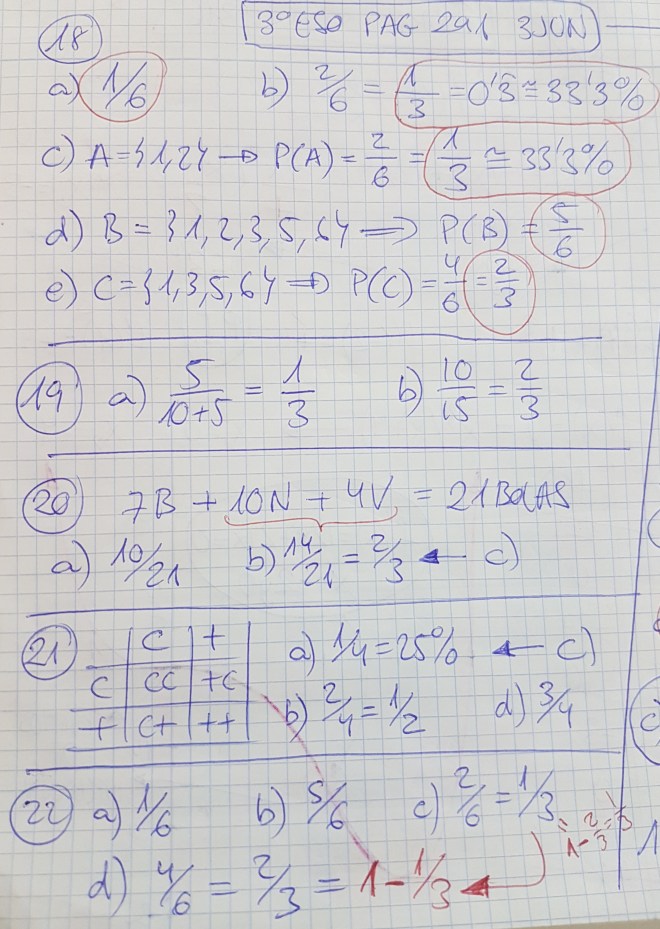 3ºESO PAG 291 3JUN
18
a) 1/6 b) 2/6 = 1/3 = 0'3̂ ≅ 33'3%
c) A = {1,2} → P(A) = 2/6 = 1/3 ≅ 33'3%
d) B = {1,2,3,5,6} ⇒ P(B) = 5/6
e) C = {1,3,5,6} ⇒ P(C) = 4/6 = 2/3
19 a) 5/10+5 = 1/3 b) 10/15 = 2/3
20 7B + 10N + 4V = 21 BOLAS
a) 10/21 b) 14/21 = 2/3 ← c)
21 C + a) 1/4 = 25% ← c)
C CC +C b) 2/4 = 1/2 d) 3/4
+ C+ ++
22 a) 1/6 b) 5/6 c) 2/6 = 1/3
= 1 - 2/3 = 1/3
d) 4/6 = 2/3 = 1 - 1/3 ←